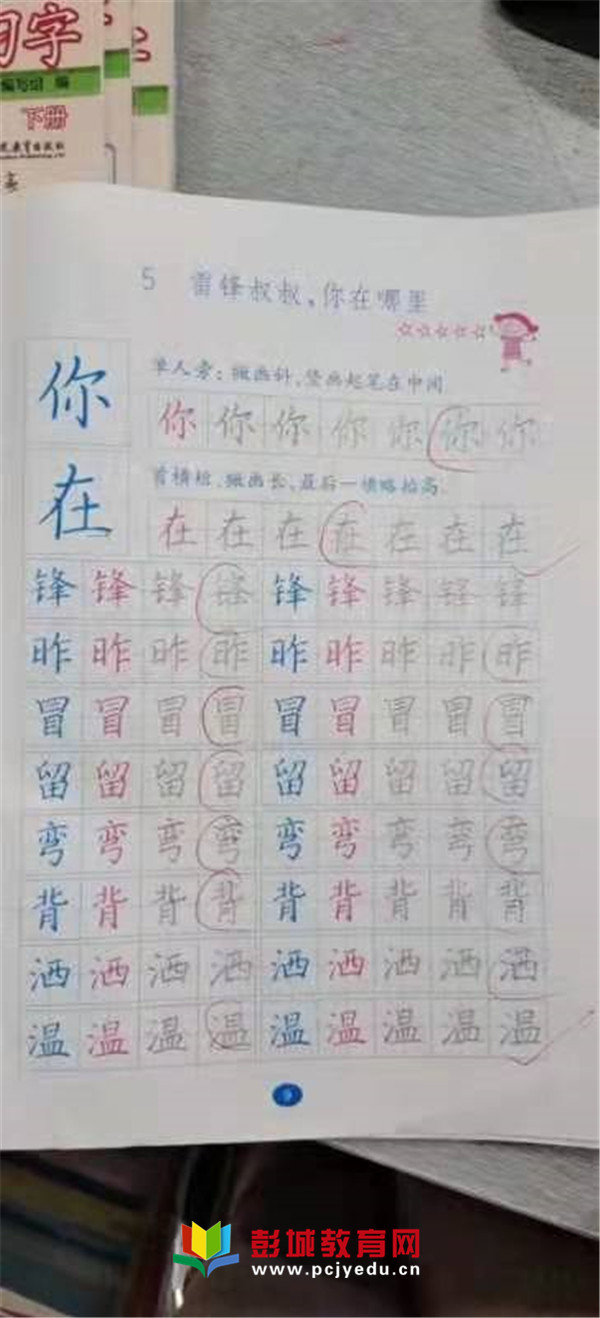 习字
编写组 编
下册
5 雷锋叔叔,你在哪里
☆☆☆☆☆
你
单人旁:撇画斜,竖画起笔在中间。
你 你 你 你 你 你 你
在
首横短,撇画长,最后一横略抬高。
在 在 在 在 在 在 在
锋 锋 锋 锋 锋 锋 锋 锋 锋
昨 昨 昨 昨 昨 昨 昨 昨 昨
冒 冒 冒 冒 冒 冒 冒 冒 冒
留 留 留 留 留 留 留 留 留
弯 弯 弯 弯 弯 弯 弯 弯 弯
背 背 背 背 背 背 背 背 背
洒 洒 洒 洒 洒 洒 洒 洒 洒
温 温 温 温 温 温 温 温 温
彭城教育网
www.pcjyedu.cn